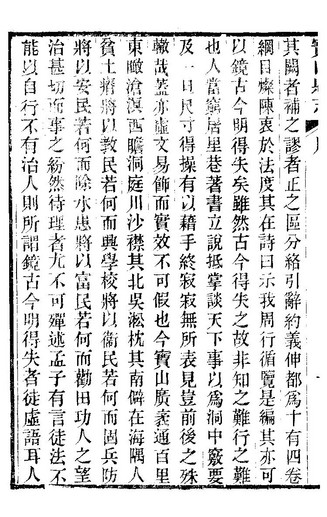 其闕者補之謬者正之區分絡引辭約義伸都爲十有四卷
綱目燦陳衷於法度其在詩曰示我周行循覽是編其亦可
以鏡古今明得失矣雖然古今得失之故非知之難行之難
也人當窮居里巷著書立說抵掌談天下事以爲洞中竅要
及一日尺寸得操有以藉手終寂寂無所表見豈前後之殊
轍哉蓋亦虛文易飾而實效不可倖也今寶山廣袤通百里
東瞰滄溟西矙洞庭川沙襟其北吳淞枕其南僻在海隅人
貧土瘠將以敎民若何而興學校將以衞民若何而固兵防
將以安民若何而除水患將以富民若何而勸田功人之望
治甚切而事之紛然待理者尤不可殫述孟子有言徒法不
能以自行不有治人則所謂鏡古今明得失者徒虛語耳人